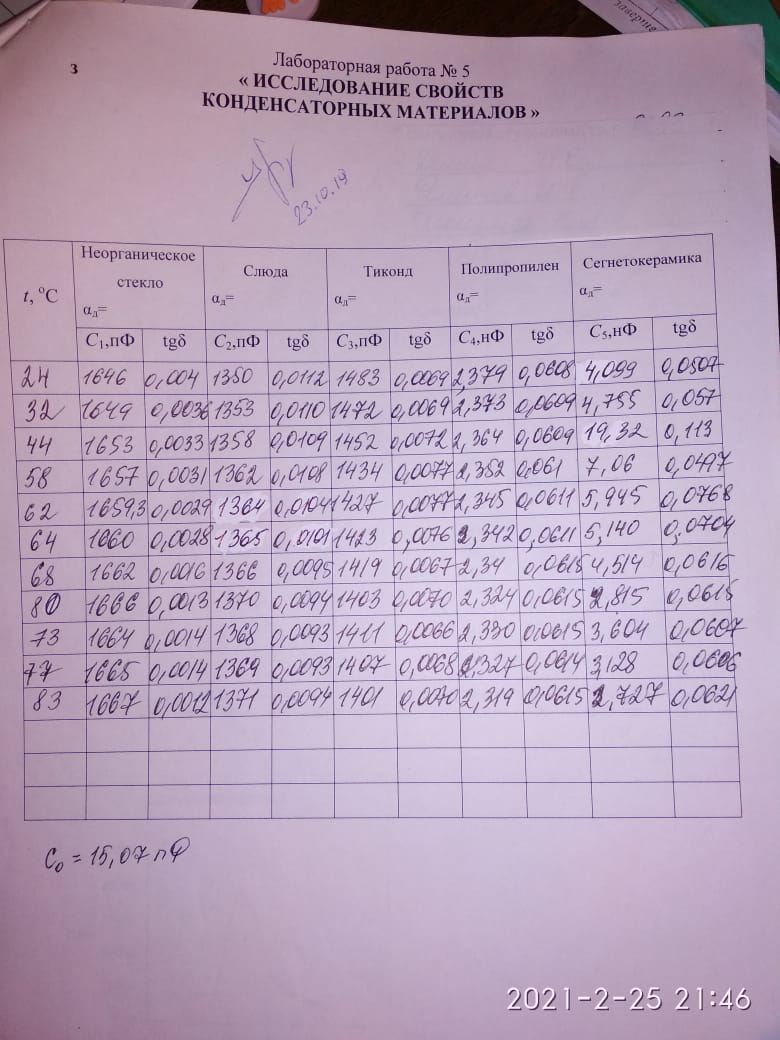 заверше
3
Лабораторная работа № 5
« ИССЛЕДОВАНИЕ СВОЙСТВ
КОНДЕНСАТОРНЫХ МАТЕРИАЛОВ »
23.10.19
t, °C Неорганическое стекло αд= Слюда αд= Тиконд αд= Полипропилен αд= Сегнетокерамика αд=
C1,пФ tgδ C2,пФ tgδ C3,пФ tgδ C4,нФ tgδ C5,нФ tgδ
24 1646 0,004 1350 0,0112 1483 0,0069 2,379 0,0608 4,099 0,0507
32 1649 0,0036 1353 0,0110 1472 0,0069 2,373 0,0609 4,755 0,057
44 1653 0,0033 1358 0,0109 1452 0,0072 2,364 0,0609 19,32 0,113
58 1657 0,0031 1362 0,0108 1434 0,0077 2,352 0,061 7,06 0,0497
62 1659,3 0,0029 1364 0,0104 1427 0,0077 2,345 0,0611 5,945 0,0768
64 1660 0,0028 1365 0,0101 1423 0,0076 2,342 0,0611 5,140 0,0704
68 1662 0,0016 1366 0,0095 1419 0,0067 2,34 0,0615 4,514 0,0616
80 1666 0,0013 1370 0,0094 1403 0,0070 2,324 0,0615 2,815 0,0615
73 1664 0,0014 1368 0,0093 1411 0,0066 2,330 0,0615 3,604 0,0607
77 1665 0,0014 1369 0,0093 1407 0,0068 2,327 0,0614 3,128 0,0606
83 1667 0,0012 1371 0,0094 1401 0,0070 2,319 0,0615 2,727 0,0621
C0 = 15,07 пФ
2021-2-25 21:46